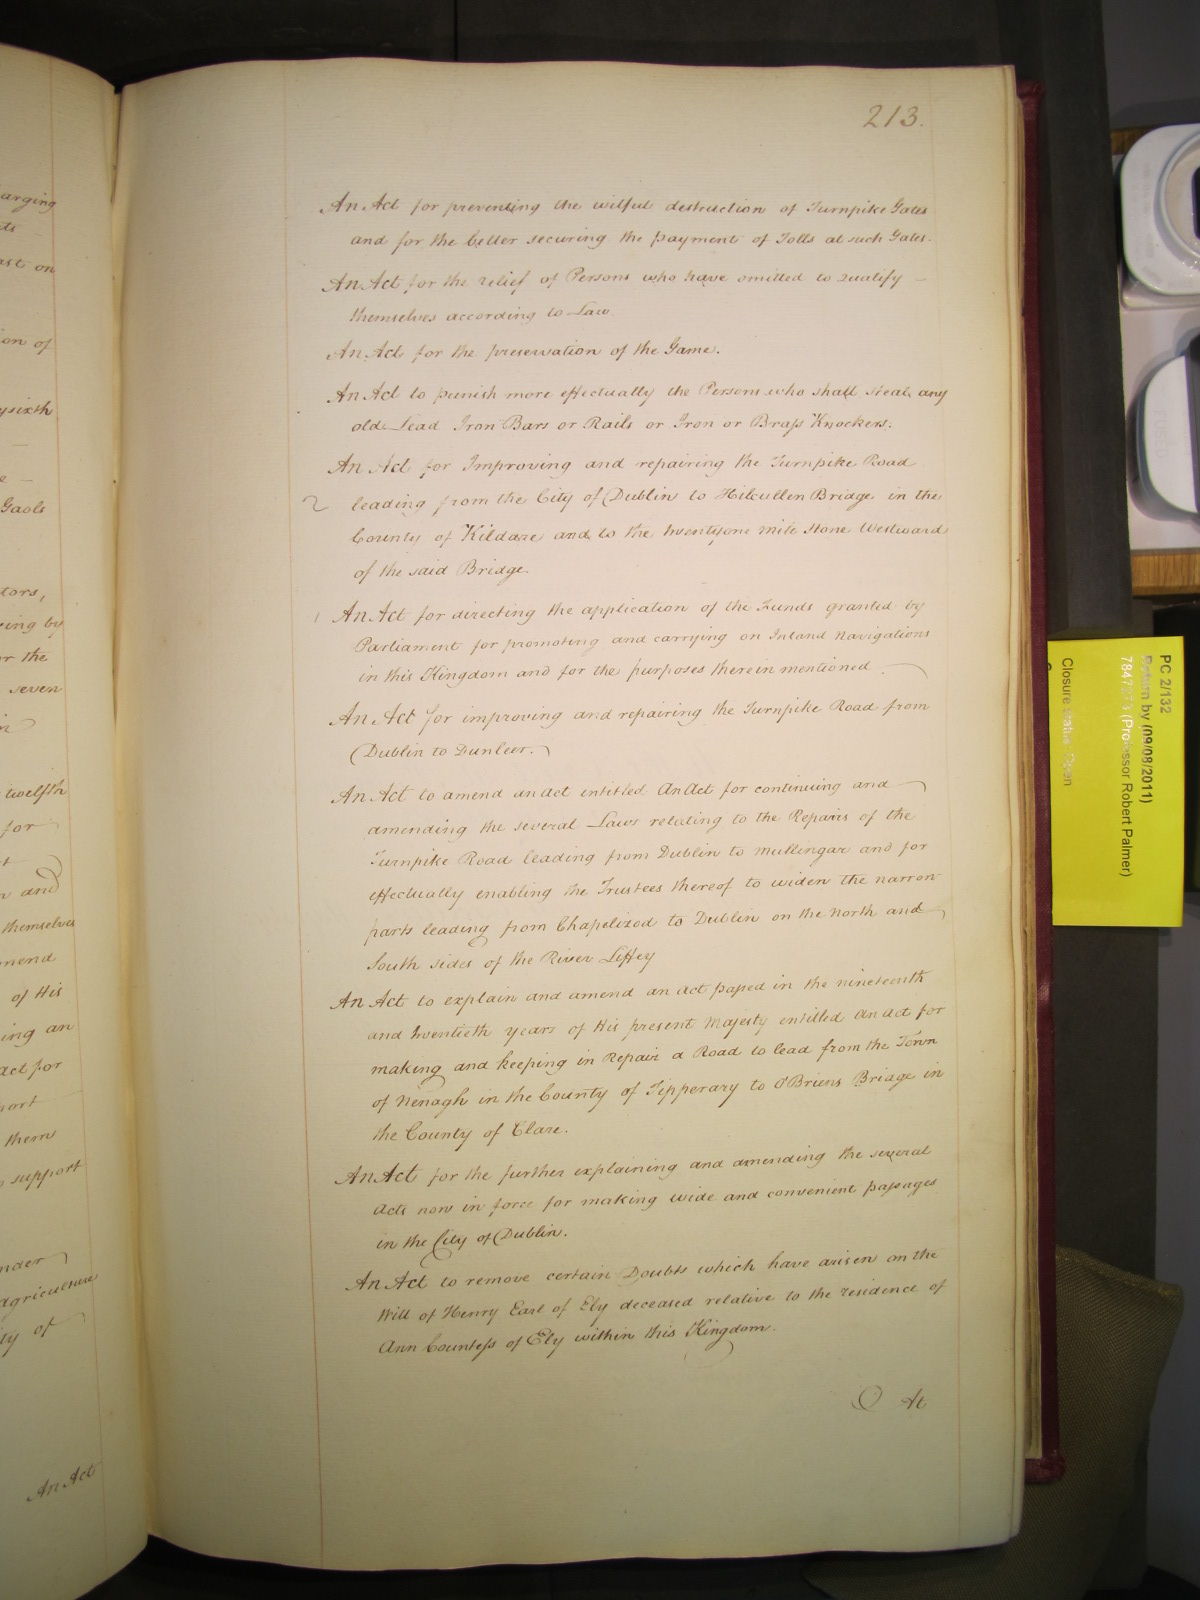 arging
ast on
on of
ysixth
Gaols
tors,
ring by
or the
seven
in
twelfth
for
and
themselves
mend
of His
ing an
act for
them
support
nder
agriculture
ty of
An Act
213.
An Act for preventing the wilful destruction of Turnpike Gates
and for the better securing the payment of Tolls at such Gates.
An Act for the relief of Persons who have omitted to qualify –
themselves according to Law
An Act for the preservation of the Game.
An Act to punish more effectually the Persons who shall steal any
old Lead Iron Bars or Rails or Iron or Brass Knockers.
An Act for Improving and repairing the Turnpike Road
2 leading from the City of Dublin to Kilcullen Bridge in the
County of Kildare and to the twentyone mile stone Westward
of the said Bridge.
1 An Act for directing the application of the Funds granted by
Parliament for promoting and carrying on Inland Navigations
in this Kingdom and for the purposes therein mentioned
An Act for improving and repairing the Turnpike Road from
Dublin to Dunleer.
An Act to amend an act intitled An Act for continuing and
amending the several Laws relating to the Repairs of the
Turnpike Road leading from Dublin to Mullingar and for
effectually enabling the Trustees thereof to widen the narrow
parts leading from Chapelizod to Dublin on the North and
South sides of the River Liffey
An Act to explain and amend an act passed in the nineteenth
and twentieth years of His present Majesty entitled An Act for
making and keeping in Repair a Road to lead from the Town
of Nenagh in the County of Tipperary to O'Briens Bridge in
the County of Clare.
An Act for the further explaining and amending the several
Acts now in force for making wide and convenient passages
in the City of Dublin.
An Act to remove certain Doubts which have arisen on the
Will of Henry Earl of Ely deceased relative to the residence of
Ann Countess of Ely within this Kingdom.
At
PC 2/132
Return by (09/08/2011)
(Professor Robert Palmer)
Closure status: Open